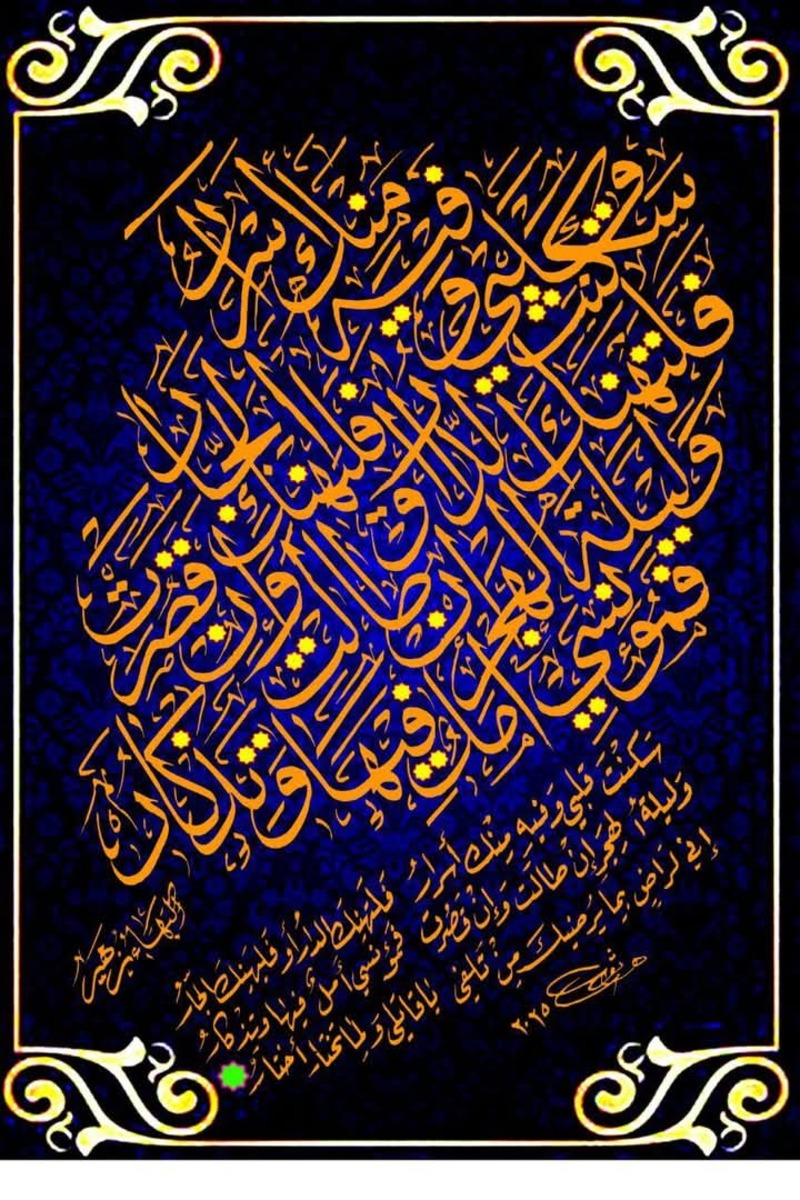 سكنت قلبي وفيه منك أسرار
فلتهنك الدار أو فليهنك الجار
وليلة الهجر إن طالت وإن قصرت
فمؤنسي أمل فيها وتذكار
سَكَنْتَ قلبي وفيه مِنْك أسرارُ فلتهنك الدارُ أو فليهنك الجارُ
وَليلةُ الهجرِ إنْ طالت وَإنْ قصُرت فمؤنسي أملٌ فيها وتذكارُ
إني لَراضٍ بما يُرضيك مِنْ تلفي يا قاتلي ولما تختارُ أختارُ
البهاء زهير
٢٠٢٥